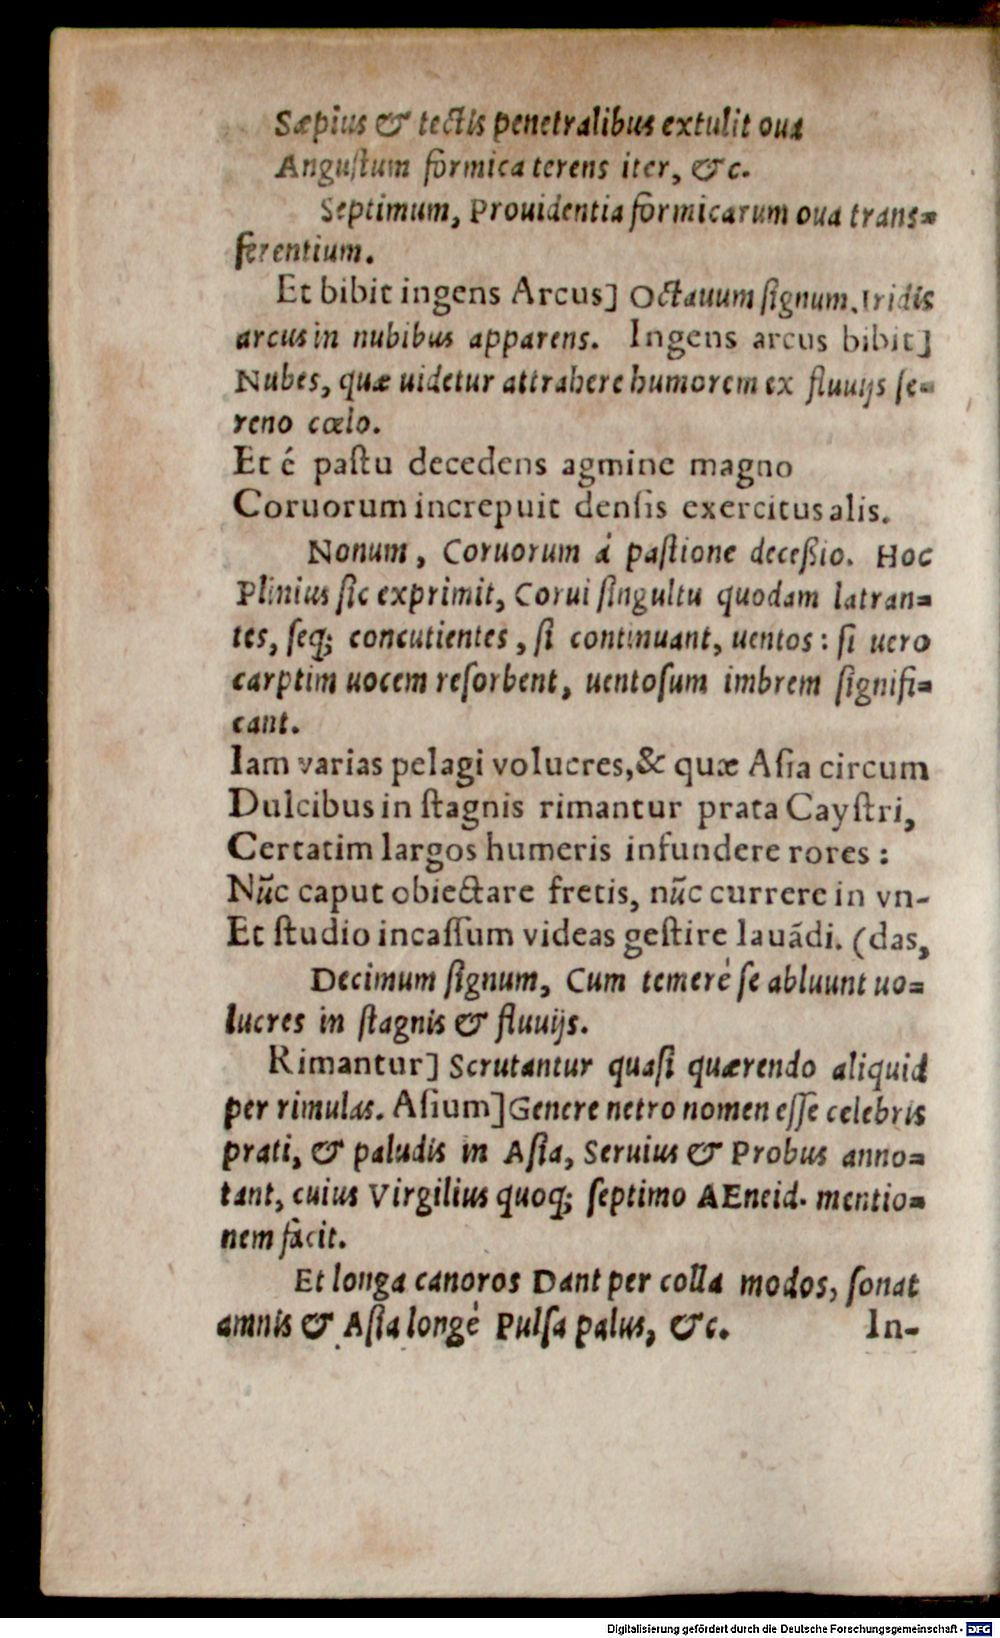 Sæpius & tectis penetralibus extulit oua
Anguſtum formica terens iter, &c.
Septimum, Prouidentia formicarum oua trans=
ferentium.
Et bibit ingens Arcus] Octauum ſignum, Iridis
arcus in nubibus apparens. Ingens arcus bibit]
Nubes, quæ uidetur attrahere humorem ex fluuijs ſe=
reno cœlo.
Et é paſtu decedens agmine magno
Coruorum increpuit denſis exercitus alis.
Nonum, Coruorum á paſtione deceßio. Hoc
Plinius ſic exprimit, Corui ſingultu quodam latran=
tes, ſeq; concutientes, ſi continuant, uentos: ſi uero
carptim uocem reſorbent, uentoſum imbrem ſignifi=
cant.
Iam varias pelagi volucres, & quæ Aſia circum
Dulcibus in ſtagnis rimantur prata Cayſtri,
Certatim largos humeris infundere rores:
Nũc caput obiectare fretis, nũc currere in vn-
Et ſtudio incaſſum videas geſtire lauãdi. (das,
Decimum ſignum, Cum temerè ſe abluunt uo=
lucres in ſtagnis & fluuijs.
Rimantur] Scrutantur quaſi quærendo aliquid
per rimulas. Aſium] Genere netro nomen eſſe celebris
prati, & paludis in Aſia, Seruius & Probus anno=
tant, cuius Virgilius quoq; ſeptimo AEneid. mentio=
nem facit.
Et longa canoros Dant per colla modos, ſonat
amnis & Aſia longè Pulſa palus, &c.
In-
Digitalisierung gefördert durch die Deutsche Forschungsgemeinschaft - DFG